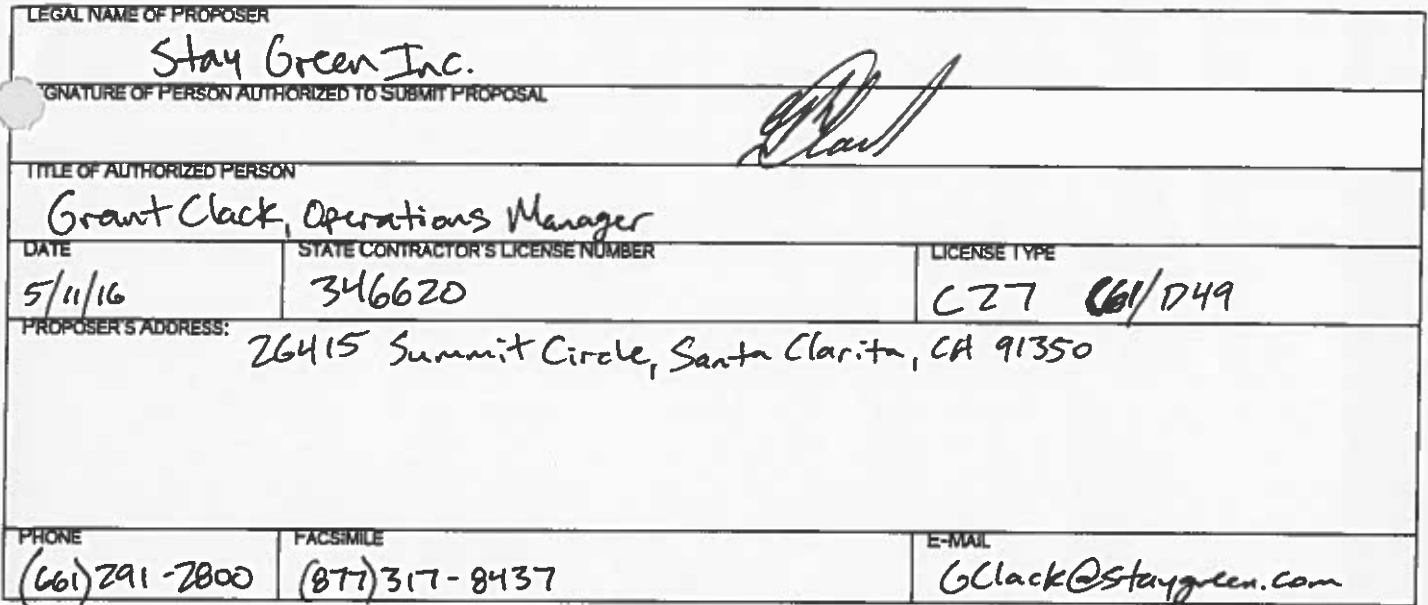 LEGAL NAME OF PROPOSER
Stay Green Inc.
GNATURE OF PERSON AUTHORIZED TO SUBMIT PROPOSAL
TITLE OF AUTHORIZED PERSON
Grant Clack, Operations Manager
DATE STATE CONTRACTOR'S LICENSE NUMBER LICENSE TYPE
5/11/16 346620 C27 C61/D49
PROPOSER'S ADDRESS:
26415 Summit Circle, Santa Clarita, CA 91350
PHONE FACSIMILE E-MAIL
(661)291-2800 (877)317-8437 GClack@staygreen.com